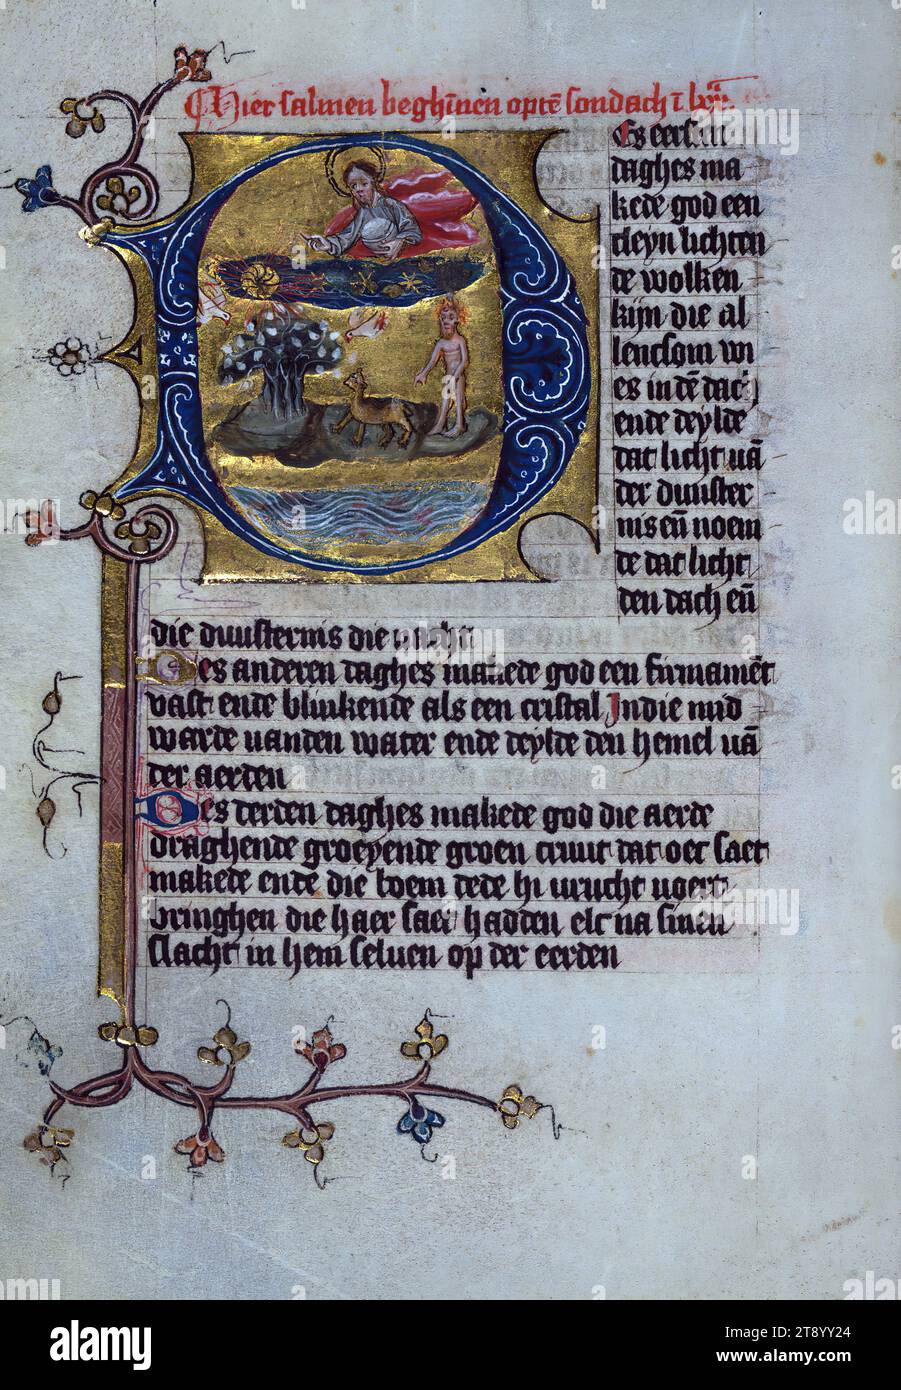 Hier salmen beghīnen optē sondach ī
Es eersten
daghes ma
kede god een
cleyn lichten
de wolken
kijn die al
lencsom wi
es in dē dach
ende deylde
dat licht uā
der duuster
nis eñ noem
de dat licht
den dach eñ
die duusternis die nacht
Des anderen daghes makede god een firmamēt
vast ende blinkende als een cristal In die mid
warde uanden water ende deylde den hemel uā
der aerden
Des derden daghes makede god die aerde
draghende groeyende groen cruut dat oec saet
makede ende die boem dede hi urucht uoert
bringhen die haer saet hadden elc na sinen
slacht in hem seluen op der eerden
alamy
Image ID: 2T8YY24
www.alamy.com